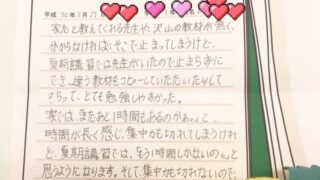 平成30年8月2
家だと教えてくれる先生や、沢山の教材が無く、
分からなければ、そこで止まってしまうけど、
夏期講習では先生がいたので止まらずに
でき、違う教材をコピーしていただいたりして
もらって、とても勉強しやすかった。
家では、まだあと1時間もあるのかぁ。と、
時間が長く感じ、集中力も切れてしまうけれ
ど、夏期講習では、もう1時間しかないの。と
思うようになります。そして、集中力も切れないので、